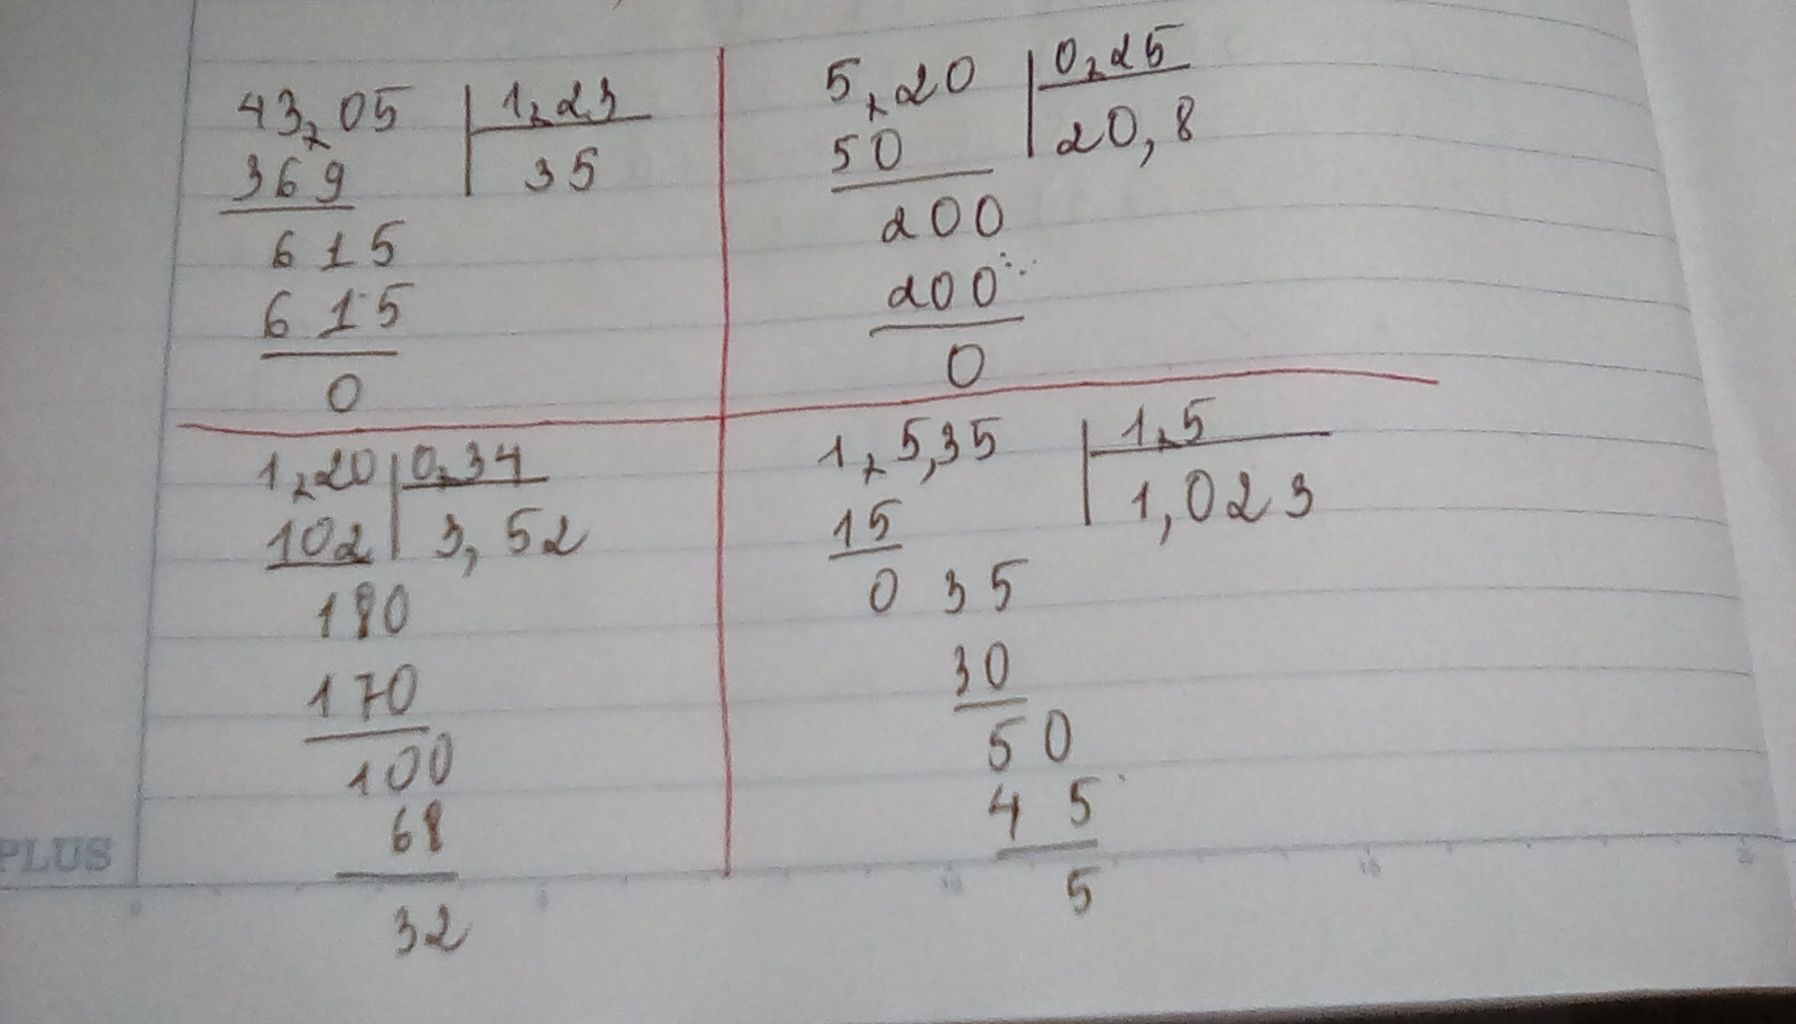 43,05 1,23
369 35
615
615
0
5,20 0,25
50 20,8
200
200
0
1,20 0,34
102 3,52
180
170
100
68
32
1,5,35 1,5
15 1,023
0 35
30
50
45
5
PLUS